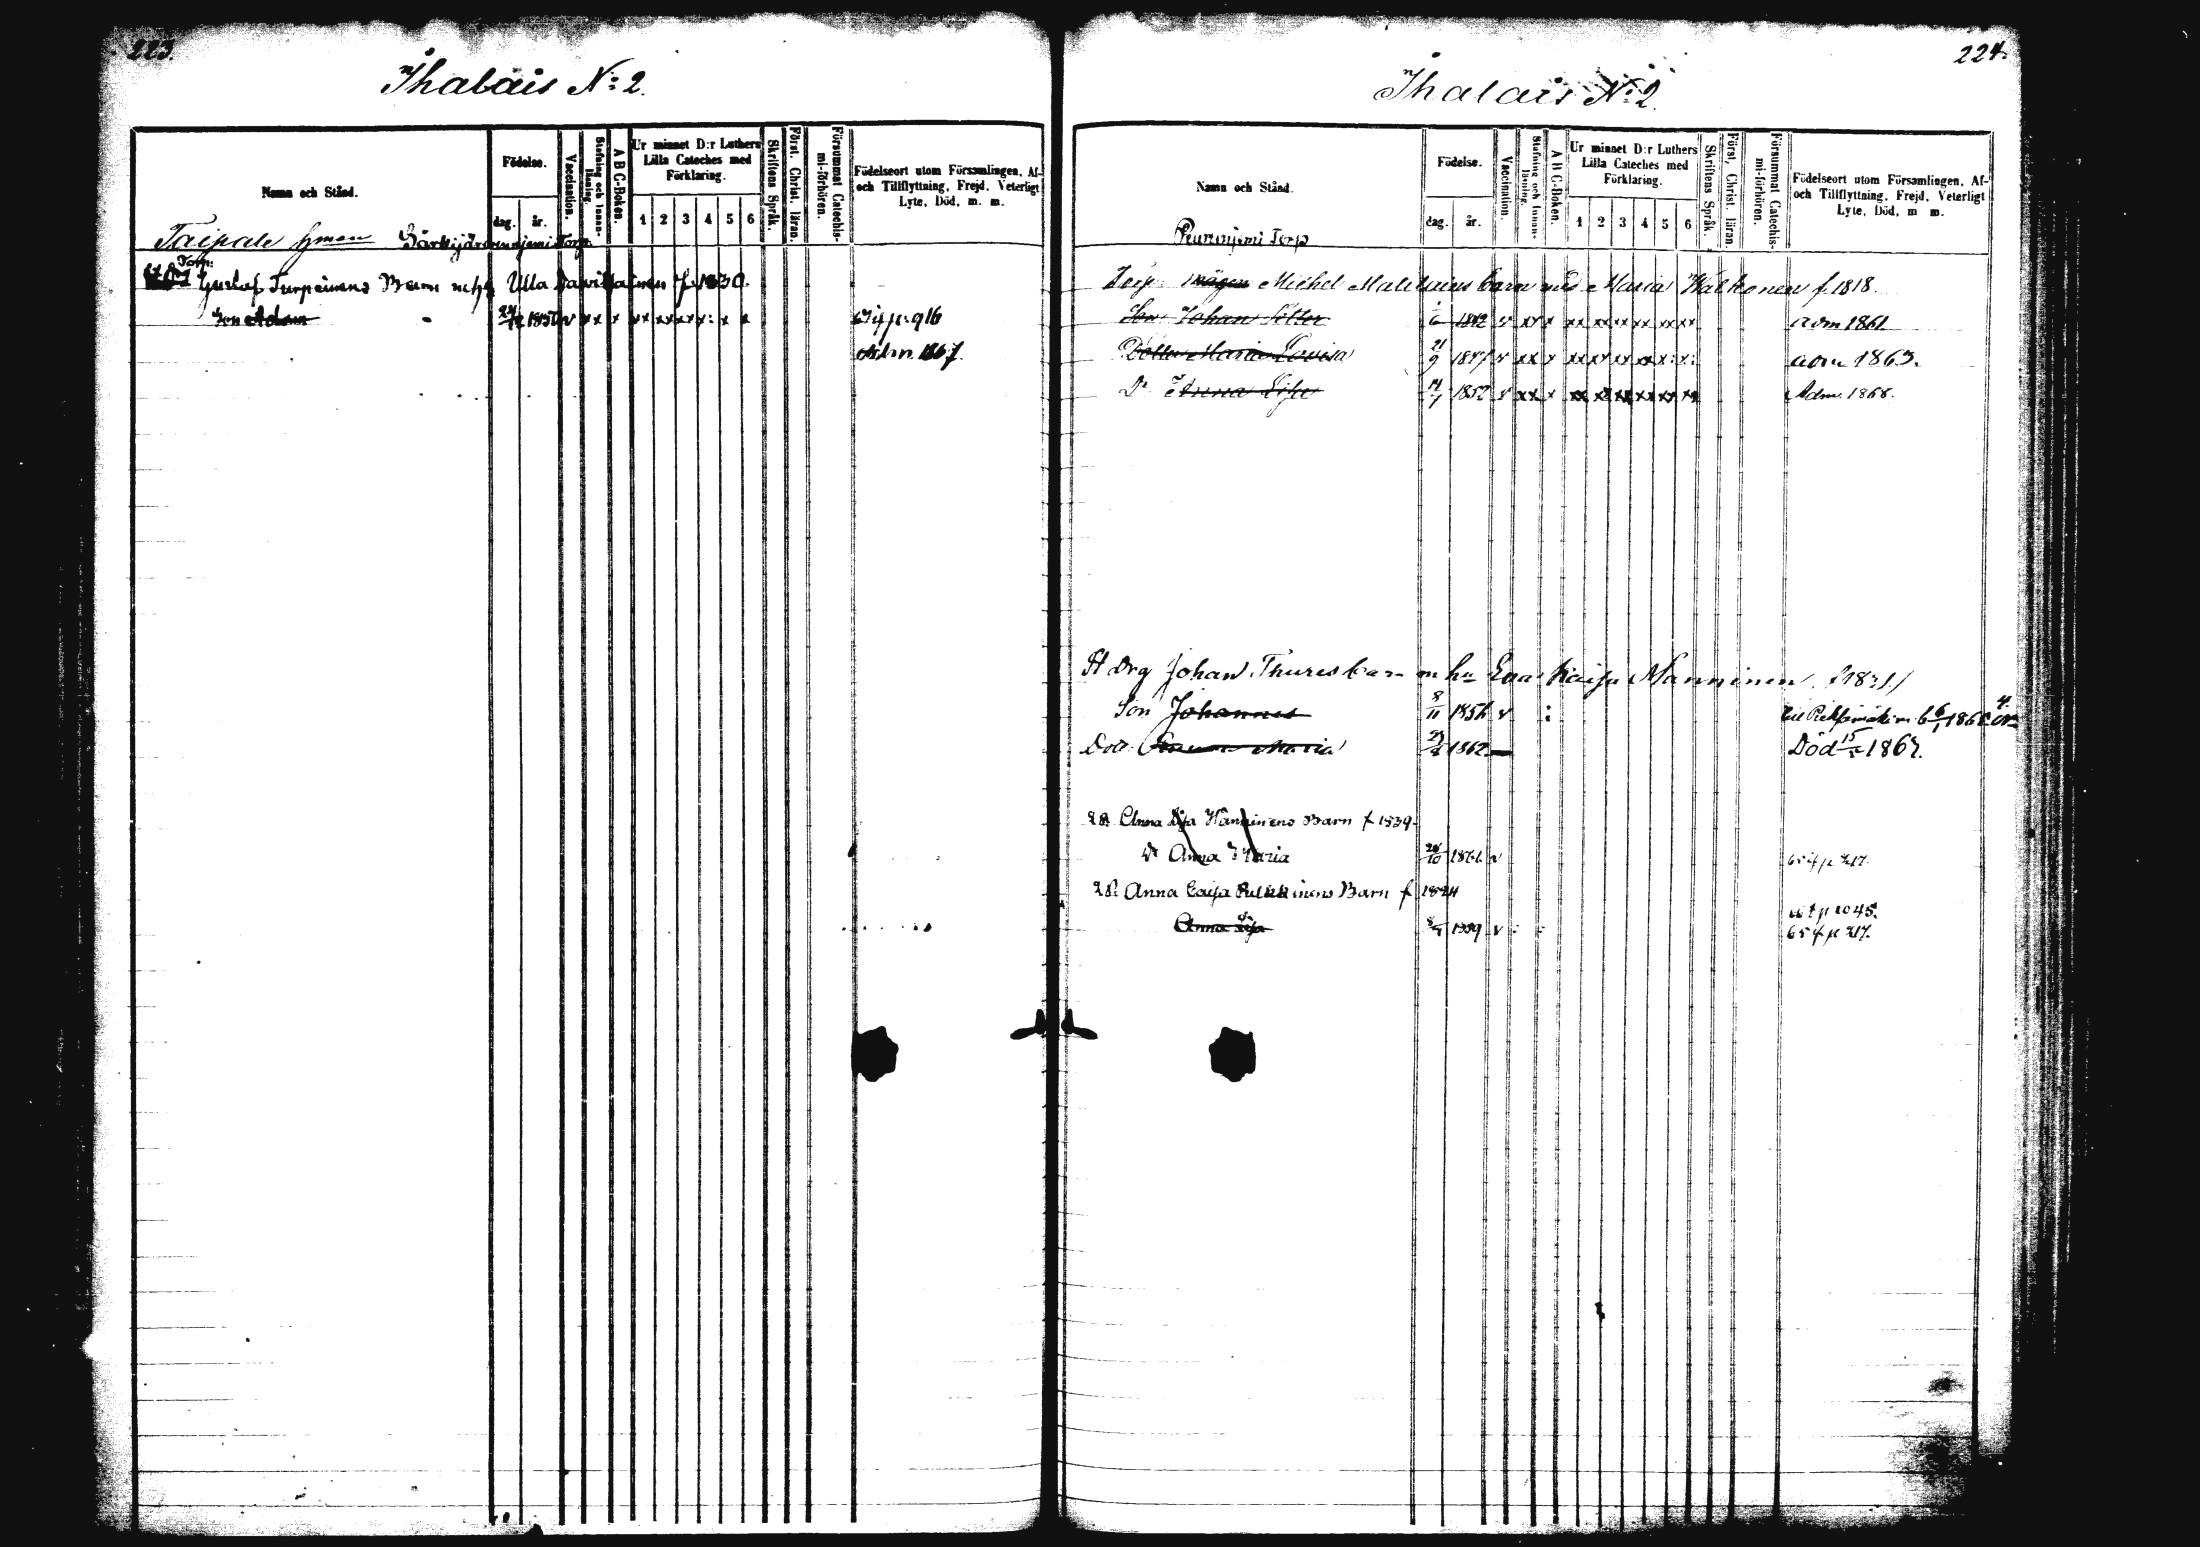 223.
Ihalais No: 2.
Namn och Stånd.
Födelse.
dag. år.
Vaccination.
Stafning och Innan-läsning.
A B C-Boken.
Ur minnet D:r Luthers Lilla Cateches med Förklaring.
1 2 3 4 5 6
Skriftens Språk.
Först. Christ. läran.
Försummat Catechismi-förhören.
Födelseort utom Församlingen, Af- och Tillflyttning, Frejd, Veterligt Lyte, Död, m. m.
Taipale Hman Särkijärvenniemi Torp.
Torp:
Gustaf Turpeinens Barn m h Ulla Davilainen f. 1830.
Son Adam 1850 v xx x xx xx xx x: x x p. 916
Adm. 1867.
224.
Ihalais No: 2.
Namn och Stånd.
Födelse.
dag. år.
Vaccination.
Stafning och Innan-läsning.
A B C-Boken.
Ur minnet D:r Luthers Lilla Cateches med Förklaring.
1 2 3 4 5 6
Skriftens Språk.
Först. Christ. läran.
Försummat Catechismi-förhören.
Födelseort utom Församlingen, Af- och Tillflyttning, Frejd, Veterligt Lyte, Död, m m.
Peuraniemi Torp
Torp: Mågen Michel Matilains barn med Maria Walkonen f. 1818.
Son Johan Petter 1/6 1842 v xx x xx xx xx xx xx xx adm 1861
Dotter Maria Lovisa 21/9 1847 v xx x xx xx xx xx x: x: adm 1863.
D: Anna Lisa 14/1 1852 v xx x xx xx xx xx xx xx Adm. 1868.
Drg Johan Thures barn m hu Eva Kaisa Manninen f 1831/
Son Johannes 8/11 1856 v : 1868
Dott. Anna Maria 1862 — Död 15/5 1863.
Anna Lisa Hanninens Barn f 1839.
D: Anna Maria /10 1861 v 654 p 217.
Anna Caisa inens Barn f 1824
p 1045.
Anna Lisa 1859 v : : 654 p 217.